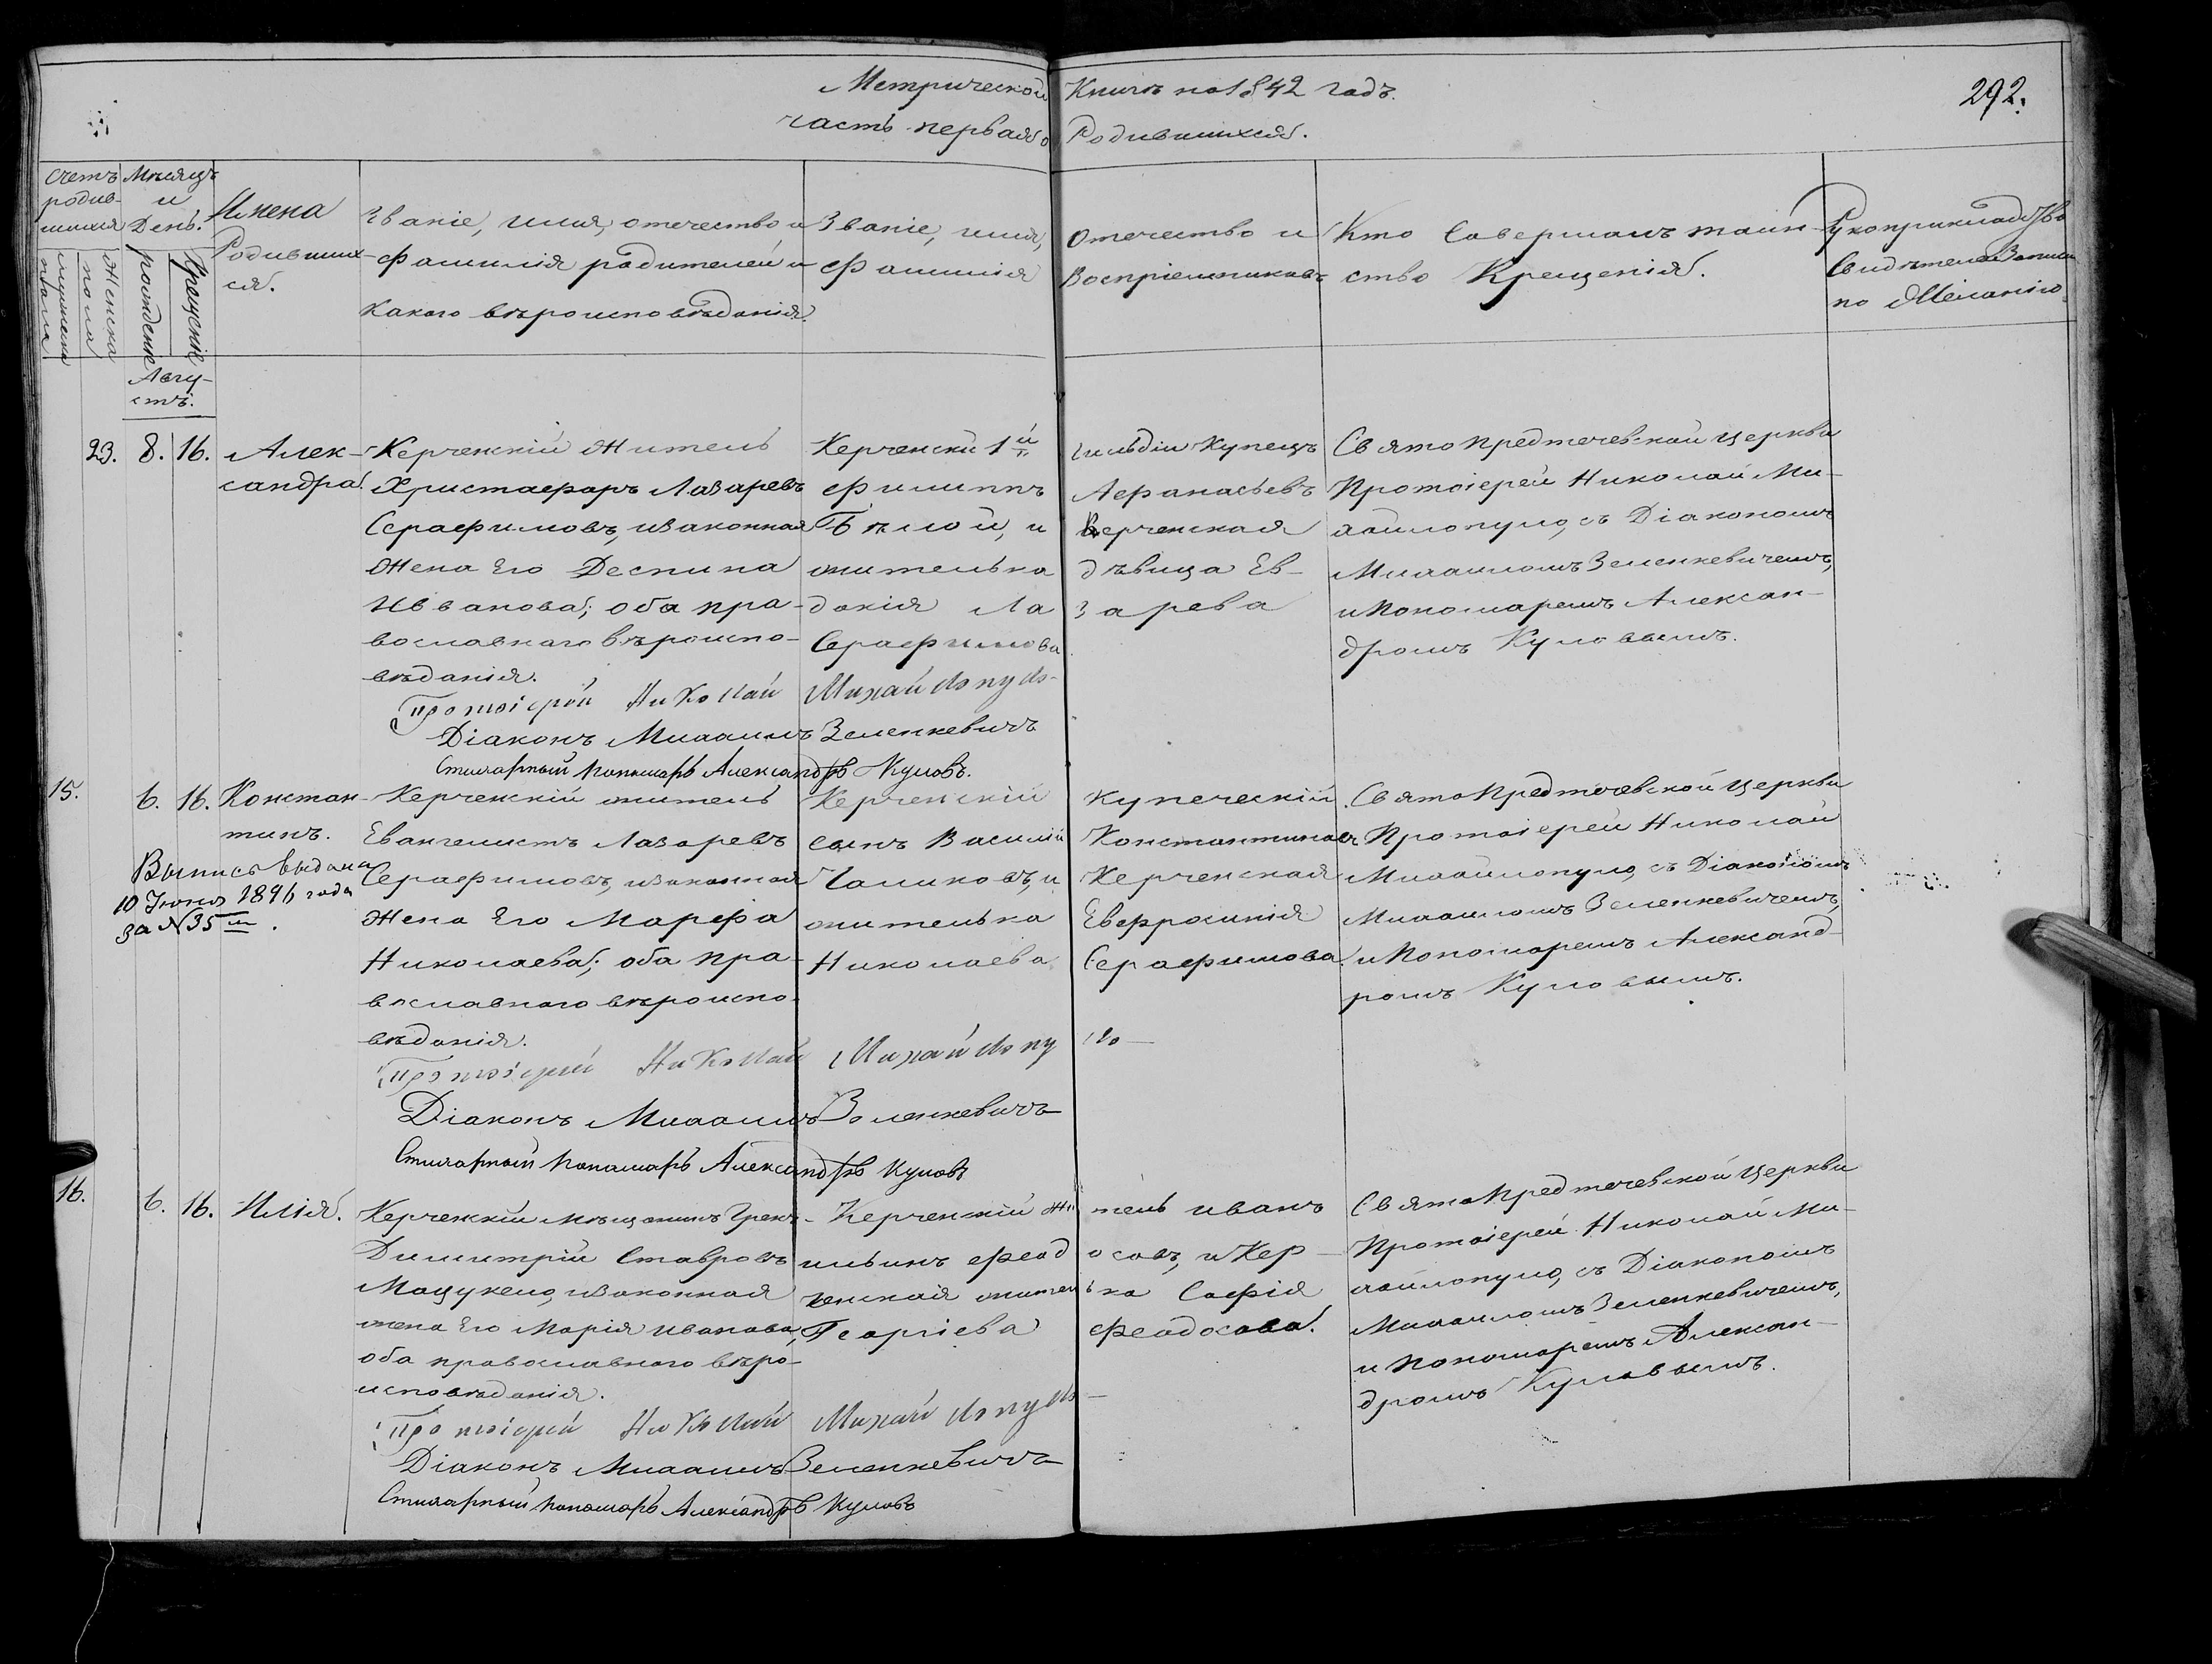 Метрической Книги на 1842 годъ.
292.
часть первая о Родившихся.
Счетъ родив-
шихся
мужеска пола
женска пола
Мѣсяцъ и День.
рожденіе
крещеніе
Имена
Родивших-
ся.
Званіе, имя, отечество и
фамилія родителей и
какого вѣроисповѣданія.
Званіе, имя, Отечество и
фамилія Воспріемниковъ
Кто совершалъ таин-
ство Крещенія.
Рукоприкладство
Свидѣтелей Записи
по желанію.
Авгу-
стъ.
23. 8. 16. Алек-
сандра.
Керченскій Житель
Христофоръ Лазаревъ
Серафимовъ, и законная
Жена Его Деспина
Иванова; оба пра-
вославнаго вѣроиспо-
вѣданія.
Керченскій 1й гильдіи Купецъ
Филиппъ Афанасьевъ
Бѣлой, и Керченская
жителька дѣвица Ев-
докія Лазарева
Серафимова
Свято Предтечевской Церкви
Протоіерей Николай Ми-
хайлопуло, съ Діакономъ
Михаиломъ Зеленкевичемъ,
и Пономаремъ Алексан-
дромъ Куловымъ.
Протоіерей Николай Михайлопуло
Діаконъ Михаилъ Зеленкевичъ
Стихарный Пономарь Александръ Куловъ.
15. 6. 16. Констан-
тинъ.
Выпись выдана
10 Іюня 1896 года
за №35
Керченскій житель
Евангелистъ Лазаревъ
Серафимовъ, и законная
Жена Его Марфа
Николаева; оба пра-
вославного вѣроиспо-
вѣданія.
Керченскій купеческій
сынъ Василій Константиновъ
Чаликовъ, и Керченская
жителька Евфросинія
Николаева Серафимова
Свято Предтечевской Церкви
Протоіерей Николай
Михайлопуло, съ Діакономъ
Михаиломъ Зеленкевичемъ,
и Пономаремъ Александ-
ромъ Куловымъ.
Протоіерей Николай Михайлопуло
Діаконъ Михаилъ Зеленкевичъ
Стихарный Пономарь Александръ Куловъ
16. 6. 16. Илія.
Керченскій мѣщанинъ Грекъ
Димитрій Ставровъ
Мацукело, и законная
жена Его Марія Иванова,
оба православного вѣро-
исповѣданія.
Керченскій житель Иванъ
Ильинъ Феодосовъ, и Кер-
ченская жителька Софія
Георгіева Феодосова.
Свято Предтечевской Церкви
Протоіерей Николай Ми-
хайлопуло, съ Діакономъ
Михаиломъ Зеленкевичемъ,
и Пономаремъ Алексан-
дромъ Куловымъ.
Протоіерей Николай Михайлопуло
Діаконъ Михаилъ Зеленкевичъ
Стихарный Пономарь Александръ Куловъ